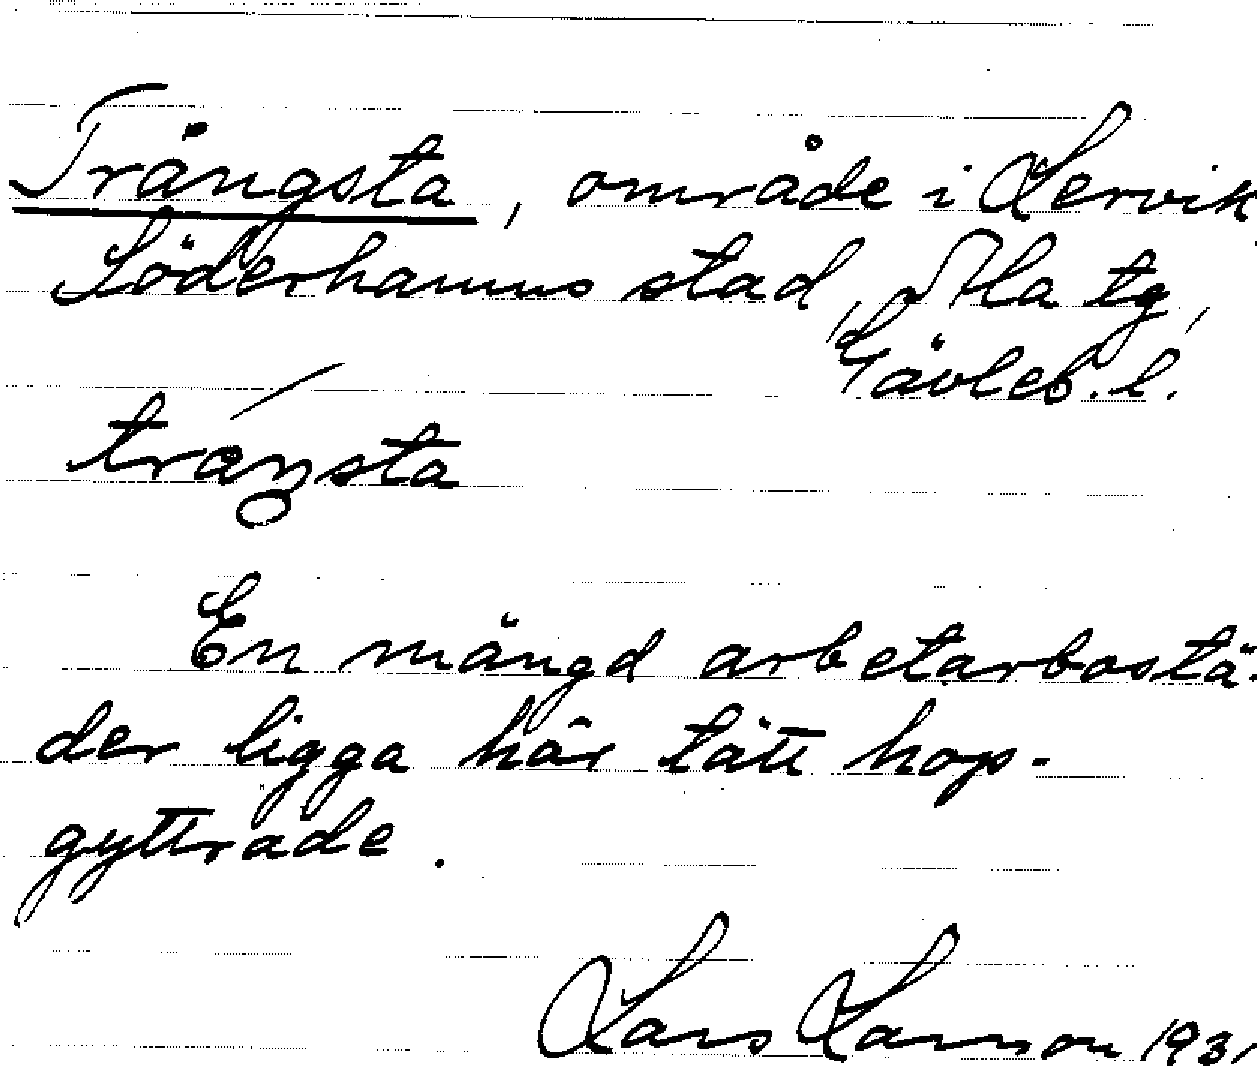 Trångsta, område i Lervik
Söderhamns stad, Ala tg,
Gävleb. l.
tråŋsta
En mängd arbetarbostä-
der ligga här tätt hop-
gyttrade.
Lars Larsson 1931